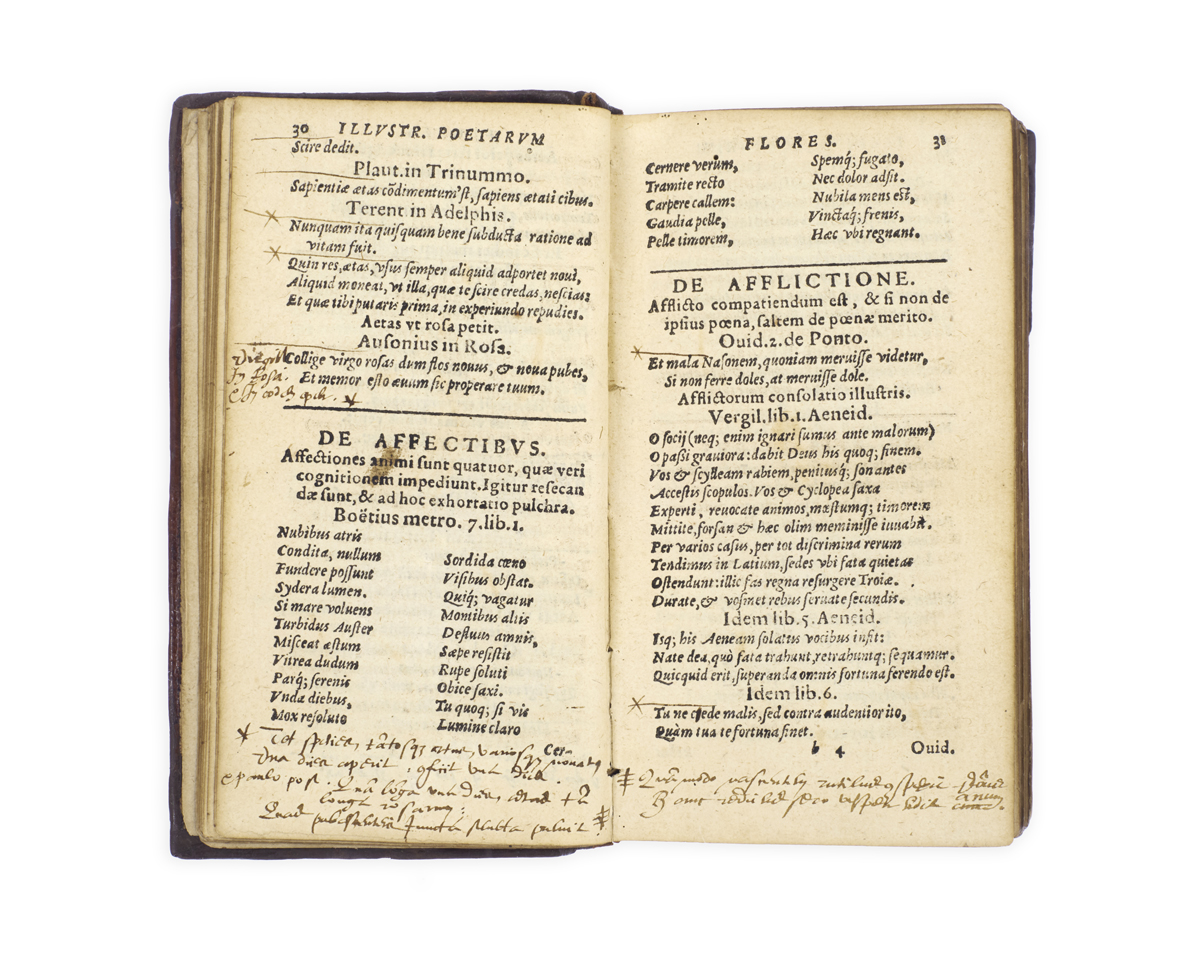 30 ILLVSTR. POETARVM
Scire dedit.
Plaut.in Trinummo.
Sapientiæ ætas cōdimentum'st, sapiens ætati cibus.
Terent.in Adelphis.
Nunquam ita quisquam bene subducta ratione ad
vitam fuit.
Quin res,ætas,vsus semper aliquid adportet noui,
Aliquid moneat, vt illa,quæ te scire credas,nescias:
Et quæ tibi putaris prima,in experiundo repudies.
Aetas vt rosa petit.
Ausonius in Rosa.
Collige virgo rosas dum flos nouus, & noua pubes,
Et memor esto æuum sic properare tuum.
DE AFFECTIBVS.
Affectiones animi sunt quatuor, quæ veri
cognitionem impediunt.Igitur resecan
dæ sunt,& ad hoc exhortatio pulchra.
Boëtius metro. 7.lib.1.
Nubibus atris
Condita, nullum
Fundere possunt
Sydera lumen.
Si mare voluens
Turbidus Auster
Misceat æstum
Vitrea dudum
Parq́; serenis
Vnda diebus,
Mox resoluto
Sordida cœno
Visibus obstat.
Quiq́; vagatur
Montibus altis
Defluus amnis,
Sæpe resistit
Rupe soluti
Obice saxi.
Tu quoq; si vis
Lumine claro
Cer-
FLORES. 31
Cernere verum,
Tramite recto
Carpere callem:
Gaudia pelle,
Pelle timorem,
Spemq́; fugato,
Nec dolor adsit.
Nubila mens est,
Vinctaq́; frenis,
Hæc vbi regnant.
DE AFFLICTIONE.
Afflicto compatiendum est, & si non de
ipsius pœna, saltem de pœnæ merito.
Ouid.2.de Ponto.
Et mala Nasonem,quoniam meruisse videtur,
Si non ferre doles,at meruisse dole.
Afflictorum consolatio illustris.
Vergil.lib.1.Aeneid.
O socij (neq; enim ignari sumus ante malorum)
O passi grauiora:dabit Deus his quoq; finem.
Vos & scylleam rabiem,penitusq́; sonantes
Accestis scopulos.Vos & Cyclopea saxa
Experti, reuocate animos,mæstumq; timorem
Mittite,forsan & hæc olim meminisse iuuabit.
Per varios casus,per tot discrimina rerum
Tendimus in Latium,sedes vbi fata quietas
Ostendunt:illic fas regna resurgere Troiæ.
Durate,& vosmet rebus seruate secundis.
Idem lib.5.Aeneid.
Isq; his Aeneam solatus vocibus infit:
Nate dea,quò fata trahunt,retrahuntq; sequamur.
Quicquid erit,superanda omnis fortuna ferendo est.
Idem lib.6.
Tu ne cede malis,sed contra audentior ito,
Quàm tua te fortuna sinet.
b 4 Ouid.